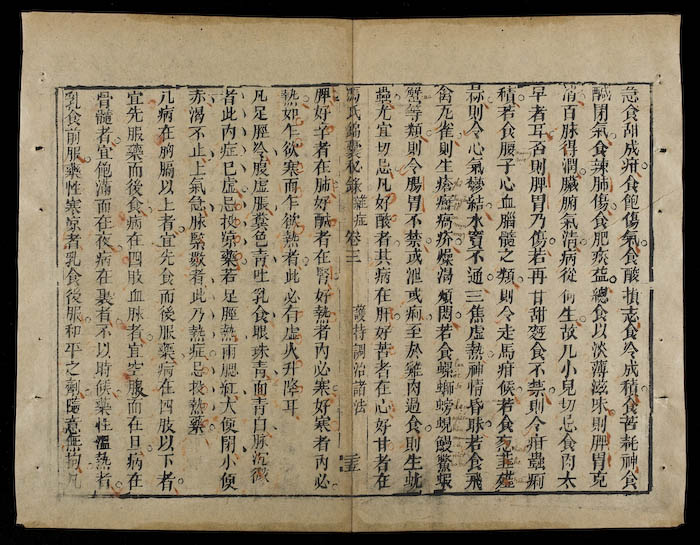 急食甜成疳食飽傷氣食酸損志食冷成積食苦耗神食
鹹閉氣食辣肺傷食肥痰益總食以淡薄滋味則脾胃克
消百脉得潤臟腑氣清病從何生故凡小兒切忌食肉太
早者耳否則脾胃乃傷若再甘甜麪食不禁則令疳蟲痢
積若食腰子心血腦髓之類則令走馬疳候若食葱韭薤
蒜則令心氣壅結水竇不通三焦虛熱神情昏聒若食飛
禽瓦雀則生瘡癬癆疥燥渴煩悶若食螺螄螃蜆鰻鱉蝦
蟹等類則令腸胃不禁或泄或痢至於雞肉過食則生蚘
蟲尤宜切忌凡好酸者其病在肝好苦者在心好甘者在
馮氏錦囊秘錄 雜症 卷三 護持調治諸法
脾好辛者在肺好鹹者在腎好熱者內必寒好寒者內必
熱如乍欲寒而乍欲熱者此必有虛火升降耳
凡足脛冷腹虛脹糞色青吐乳食眼珠青面青白脈沉微
者此內症已虛忌投凉藥若足脛熱兩腮紅大便閉小便
赤渴不止上氣急脉緊數者此乃熱症忌投熱藥
凡病在胸膈以上者宜先食而後服藥病在四肢以下者
宜先服藥而後食病在四肢血脉者宜空腹而在旦病在
骨髓者宜飽滿而在夜病在裏者不以時候藥性溫熱者
乳食前服藥性寒凉者乳食後服和平之劑隨意無拘凡